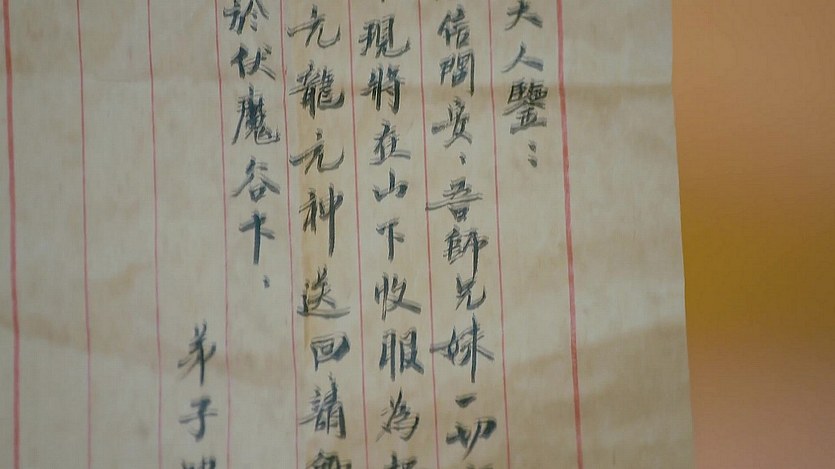 大人鑒：
信問安、吾師兄妹一切
現將在山下收服為
九龍元神送回請
於伏魔谷下、
弟子